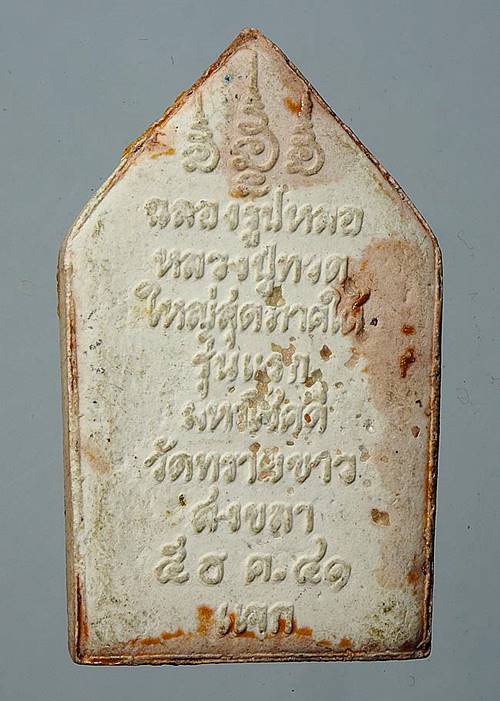 ฉลองรูปหล่อ
หลวงปู่ทวด
ใหญ่สุดภาคใต้
รุ่นแรก
วัดทรายขาว
สงขลา
๕ ธ ค. ๔๑
แจก